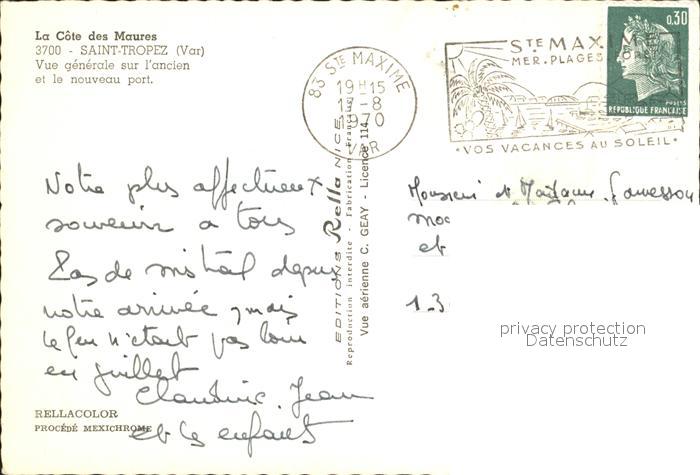 La Côte des Maures
3700 - SAINT-TROPEZ (Var)
Vue générale sur l'ancien
et le nouveau port.
83 STE MAXIME
19H15
1-8
1970
VAR
STE MAXIME
MER. PLAGES
VOS VACANCES AU SOLEIL
0,30
POSTES
REPUBLIQUE FRANÇAISE
Notre plus affectueux
souvenir a tous
Pas de mistral depuis
notre arrivée, mais
le feu n'etait pas loin
en juillet
Claudine, Jean
et les enfants
EDITIONS Rella NICE
Reproduction interdite - Fabrication Française
Vue aérienne C. GEAY - Licence 114
Monsieur et Madame
et
1 3
privacy protection
Datenschutz
RELLACOLOR
PROCÉDÉ MEXICHROME